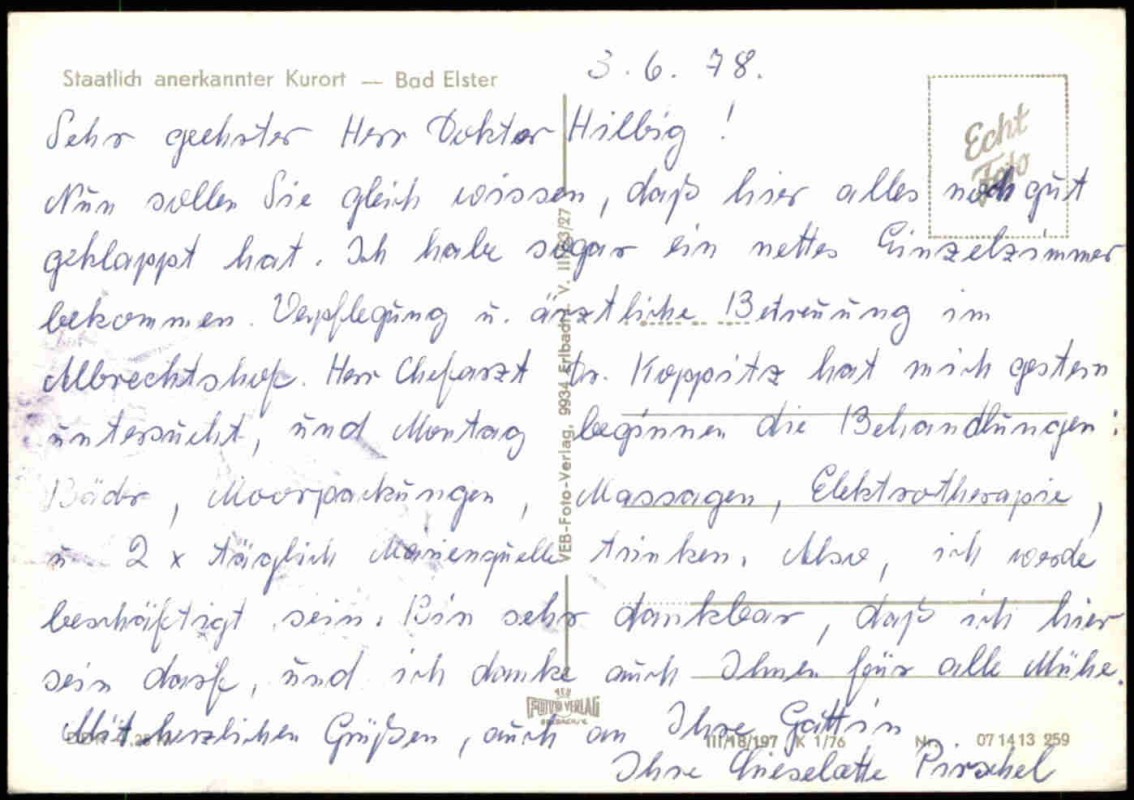 Staatlich anerkannter Kurort — Bad Elster
3.6.78.
Echt
Foto
Sehr geehrter Herr Doktor Hilbig!
Nun sollen Sie gleich wissen, daß hier alles noch gut
geklappt hat. Ich habe sogar ein nettes Einzelzimmer
bekommen. Verpflegung u. ärztliche Betreuung im
Albrechtshof. Herr Chefarzt Dr. Koppitz hat mich gestern
untersucht, und Montag beginnen die Behandlungen:
Bäder, Moorpackungen, Massagen, Elektrotherapie,
u. 2 x täglich Marienquelle trinken. Also, ich werde
beschäftigt sein. Bin sehr dankbar, daß ich hier
sein darf, und ich danke auch Ihnen für alle Mühe.
Mit herzlichen Grüßen, auch an Ihre Gattin
Ihre
VEB-Foto-Verlag, 9934 Erlbach i. V.
FOTO VERLAG
III/18/197 K 1/76 Nr. 07 14 13 259